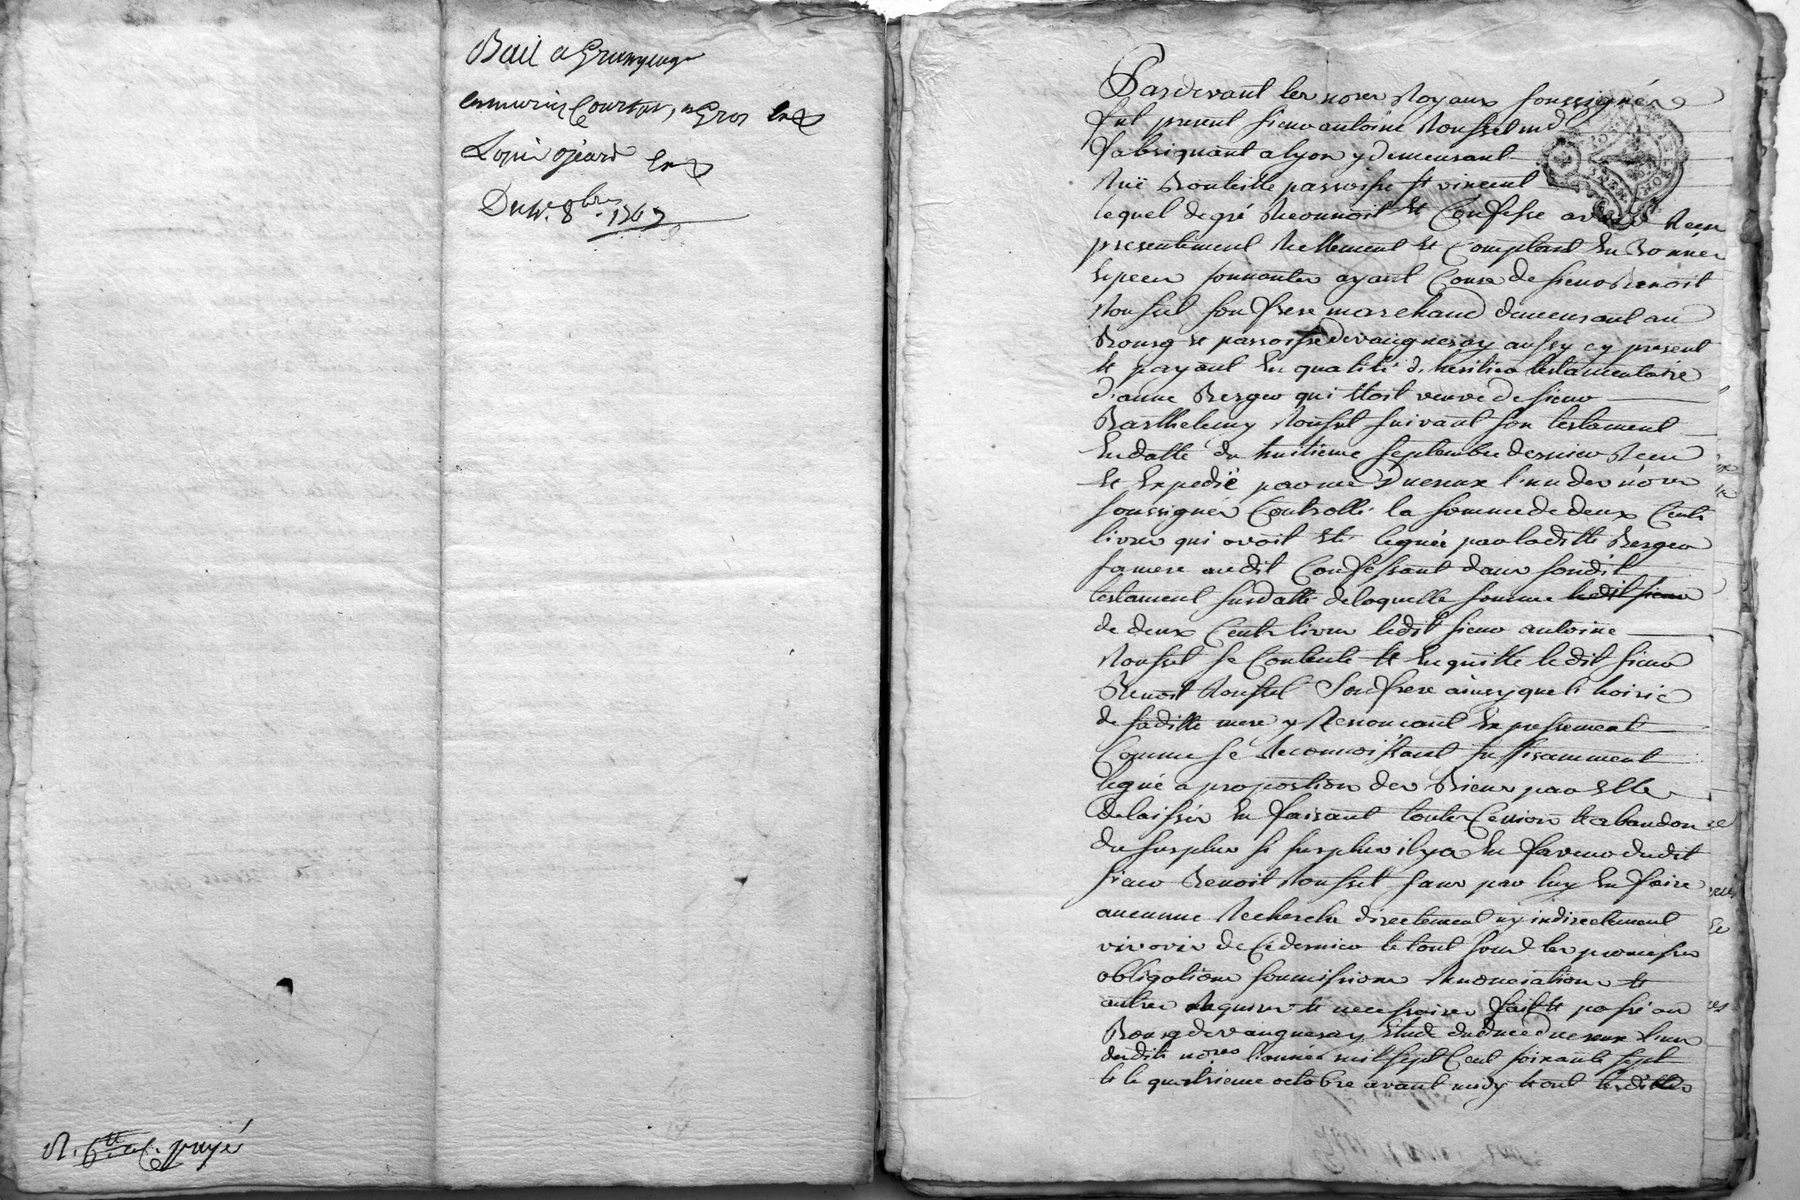 Bail a Grangeage
Courtot, a Gros
Louis ojeard
Du 4.e 8bre 1767
R. 6tt payé
Pardevant les nores Royaux soussignés
fut present sieur antoine Rousset md
fabriquant a lyon y demeurant
Ruë Bouteille parroisse st vincent
lequel de gré Reconnoit et Confesse avoir Receu
presentement Reellement et Comptant En Bonnes
Especes sonnantes ayant Cours de sieur Benoit
Rousset son frere marchand demeurant au
Bourg et parroisse de vaugneray aussy cy present
et payant En qualité de heritier testamentaire
d'anne Berger qui etoit veuve de sieur
Barthelemy Rousset suivant son testament
En datte du huitieme septembre dernier Receu
et Expedié par me Duereux l'un des nores
soussignés Controllé la somme de deux Cents
livres qui avoit Eté leguée par laditte Berger
sa mere audit Confessant dans sondit
testament susdatté de laquelle somme ledit sieur
de deux Cents livres ledit sieur antoine
Rousset se Contente et En quitte ledit sieur
Benoit Rousset Son frere ainsy que l'hoirie
de saditte mere y Renoncant Expressement
Comme se Reconnoissant suffisamment
legué a proportion des Biens par Elle
delaissés En faisant toutes Cession et abandon
du surplus si surplus il y a En faveur dudit
sieur Benoit Rousset sans par luy En faire
aucunne Recherche directement ny indirectement
vis avis de Ce dernier le tout sous les promesses
obligations soumissions Renonciations et
autres Requises et necessaires fait et passé au
Bourg de vaugneray Etude dudit me Duereux l'un
desdits nores l'année mil sept Cent soixante sept
et le quatrieme octobre avant midy et ont lesdittes